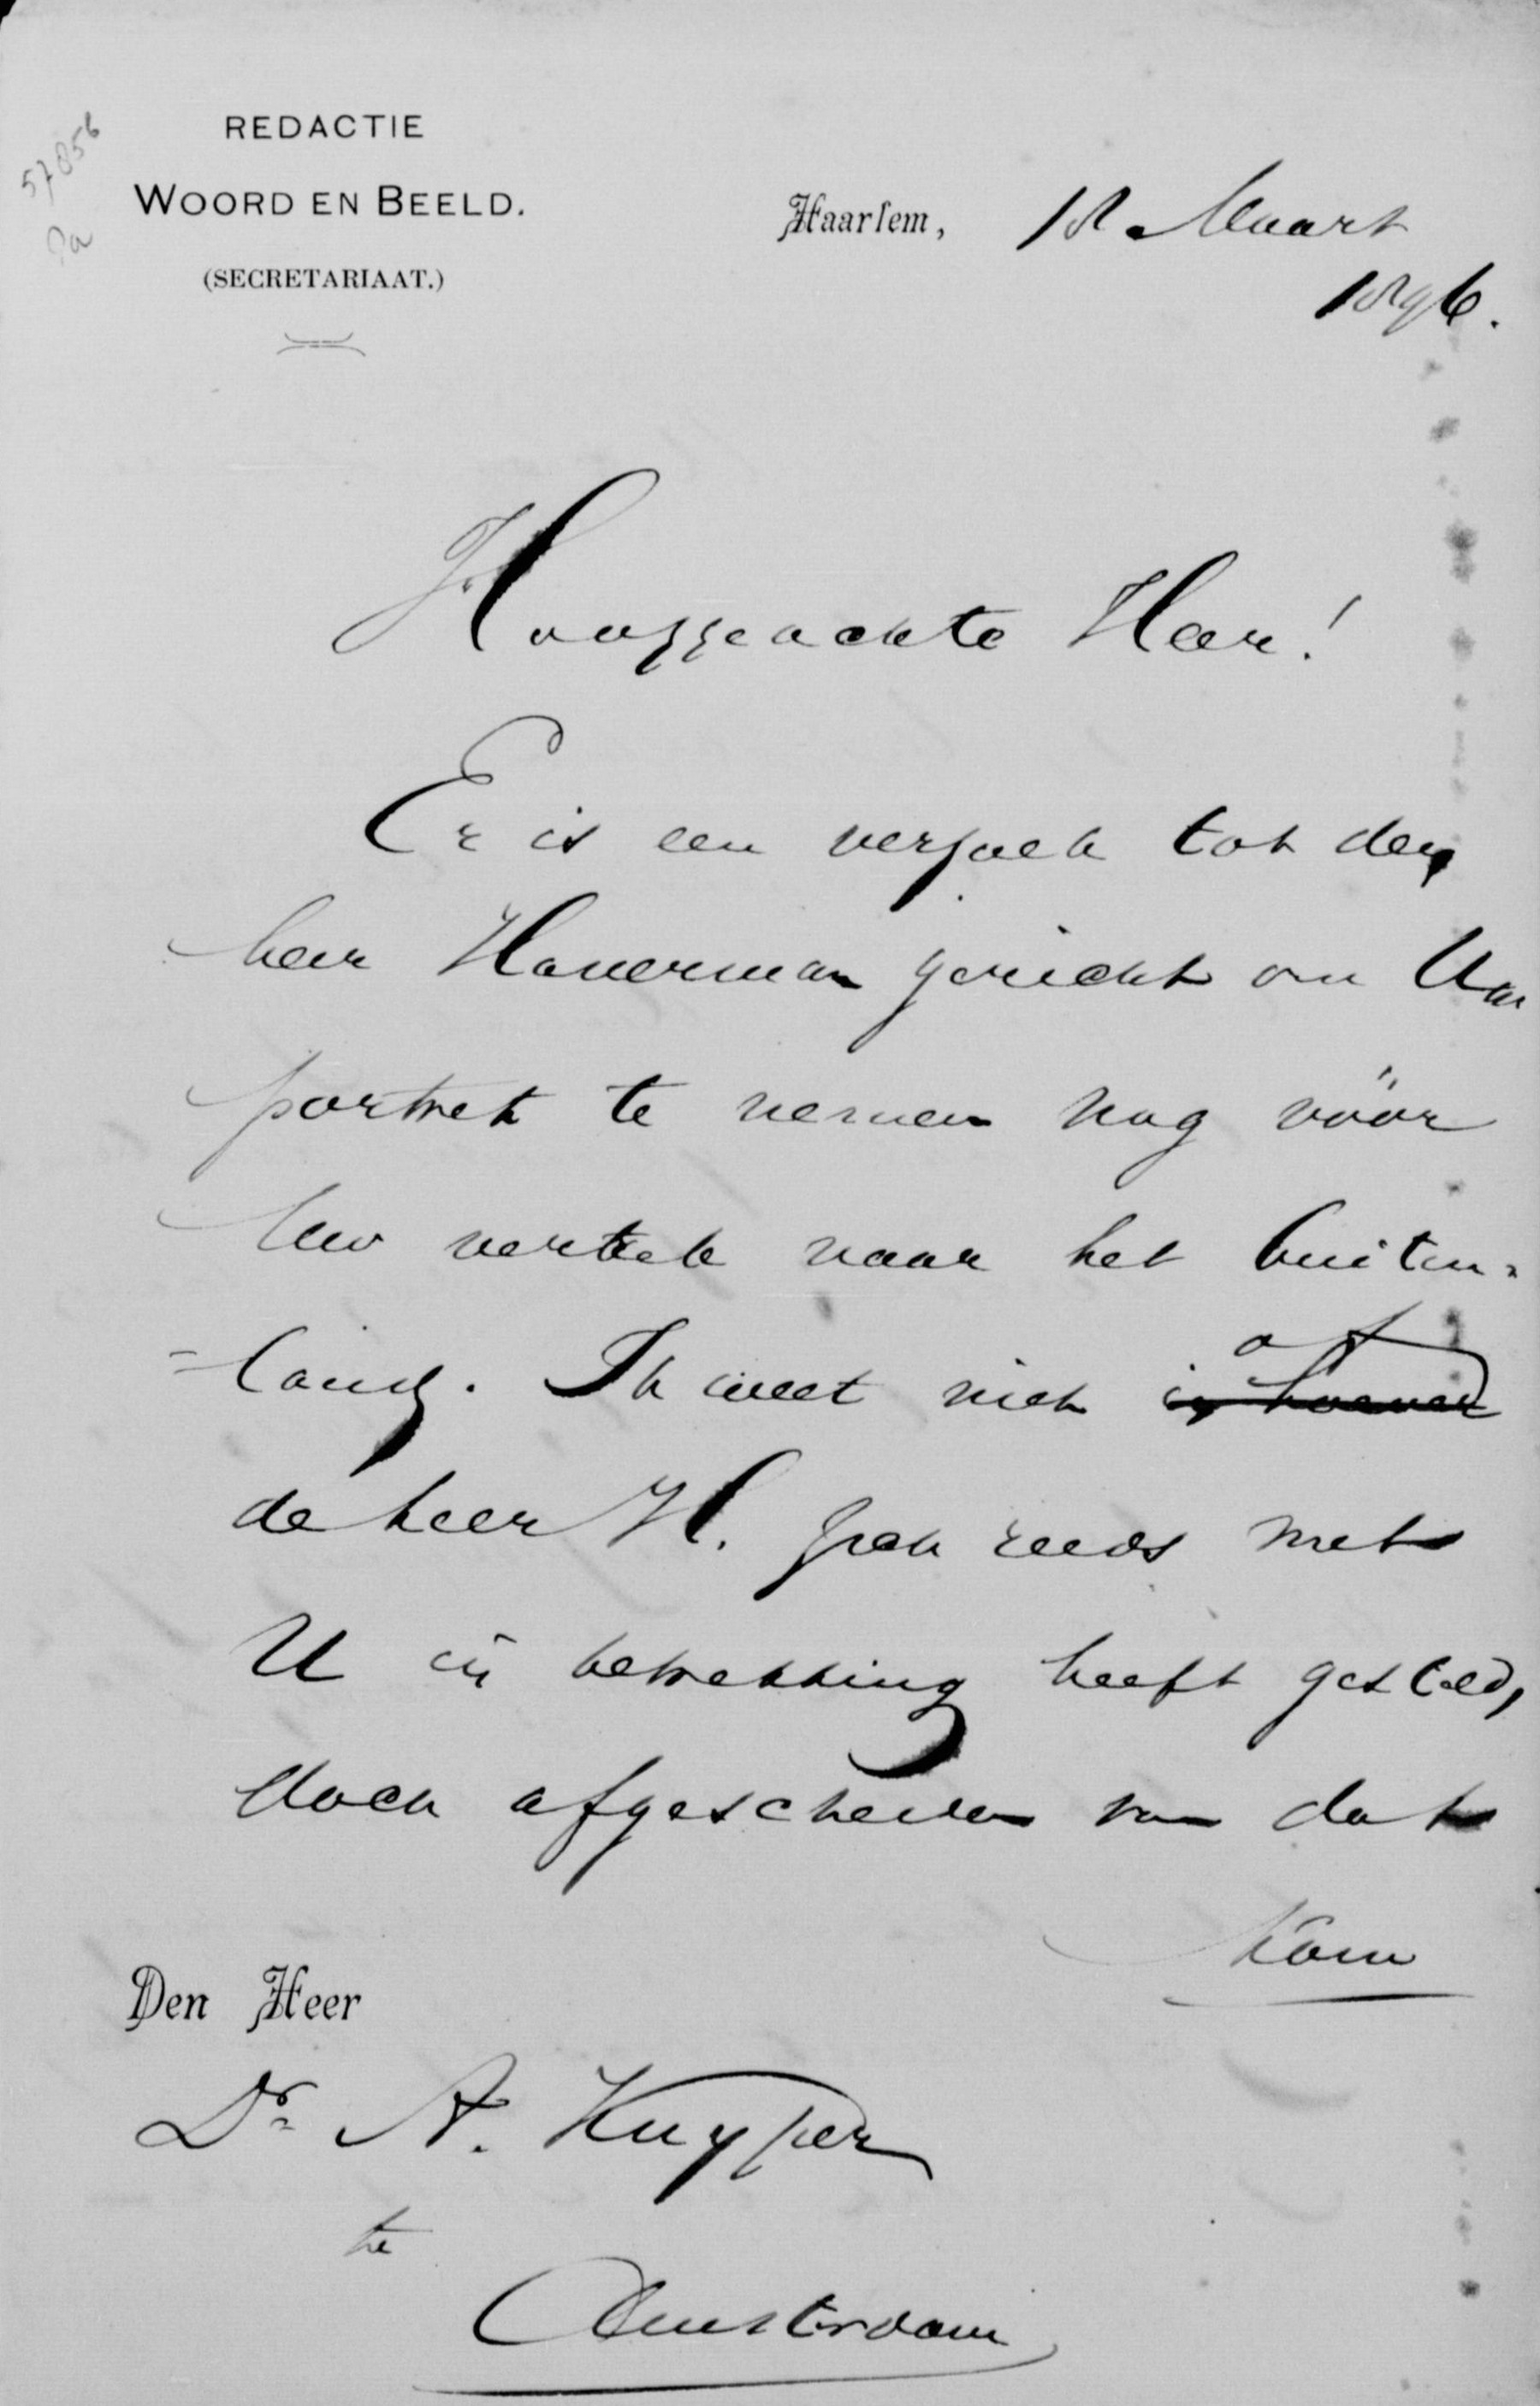 57856
Pa
REDACTIE
WOORD EN BEELD.
(SECRETARIAAT.)
Haarlem, 18 Maart
1896.
Hooggeachte Heer!
Er is een verzoek tot den
heer Haverman gericht om Uw
portret te nemen nog vóór
Uw vertrek naar het buiten-
=land. Ik weet niet in hoever of
de heer H. zich reeds met
U in betrekking heeft gesteld,
doch afgescheiden van dat
kom
Den Heer
Dr. A. Kuyper
te
Amsterdam